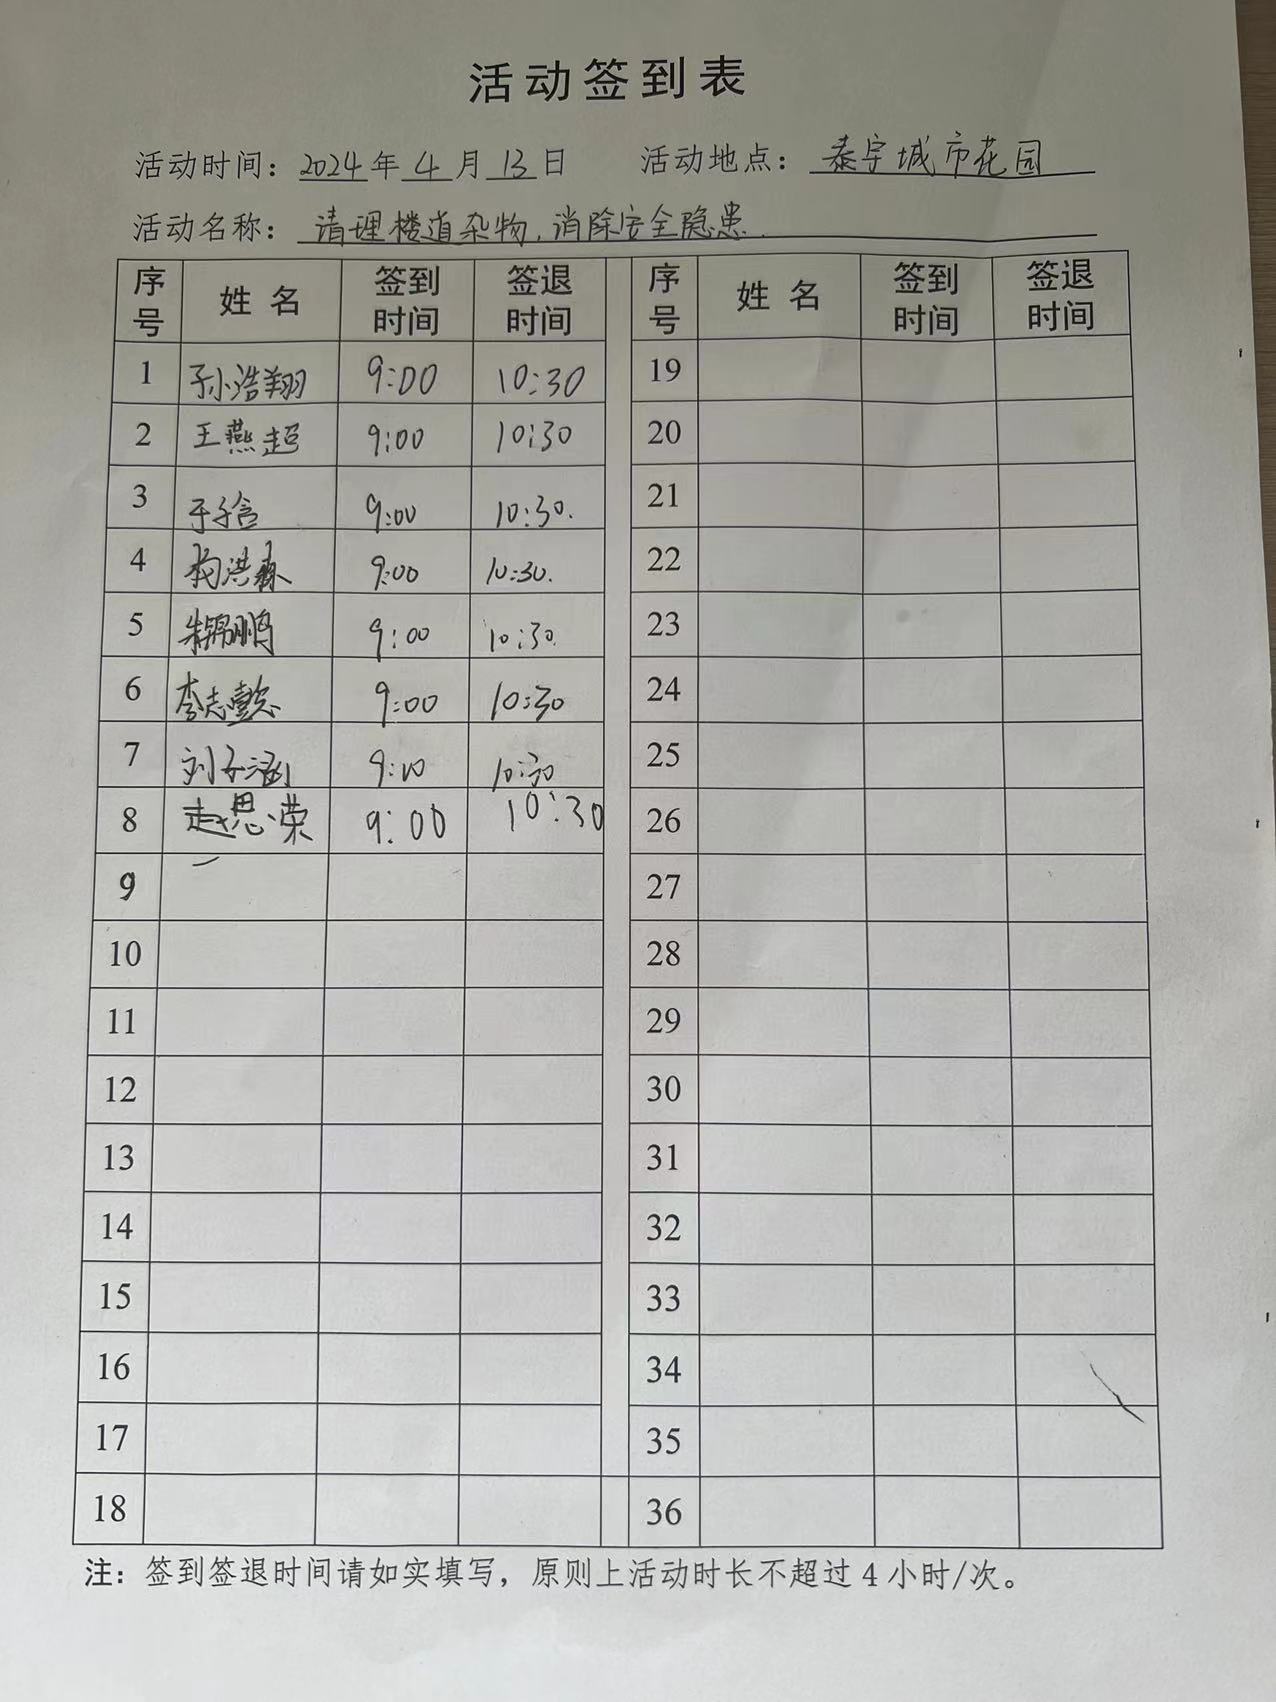 活动签到表
活动时间：2024年4月13日 活动地点：泰宇城市花园
活动名称：清理楼道杂物，消除安全隐患.
序号 姓名 签到时间 签退时间 序号 姓名 签到时间 签退时间
1 孙浩翔 9:00 10:30 19
2 王燕超 9:00 10:30 20
3 于子含 9:00 10:30. 21
4 洪森 9:00 10:30. 22
5 朱锦鹏 9:00 10:30. 23
6 李志懿 9:00 10:30 24
7 刘子涵 9:00 10:30 25
8 赵思荣 9:00 10:30 26
9 27
10 28
11 29
12 30
13 31
14 32
15 33
16 34
17 35
18 36
注：签到签退时间请如实填写，原则上活动时长不超过4小时/次。